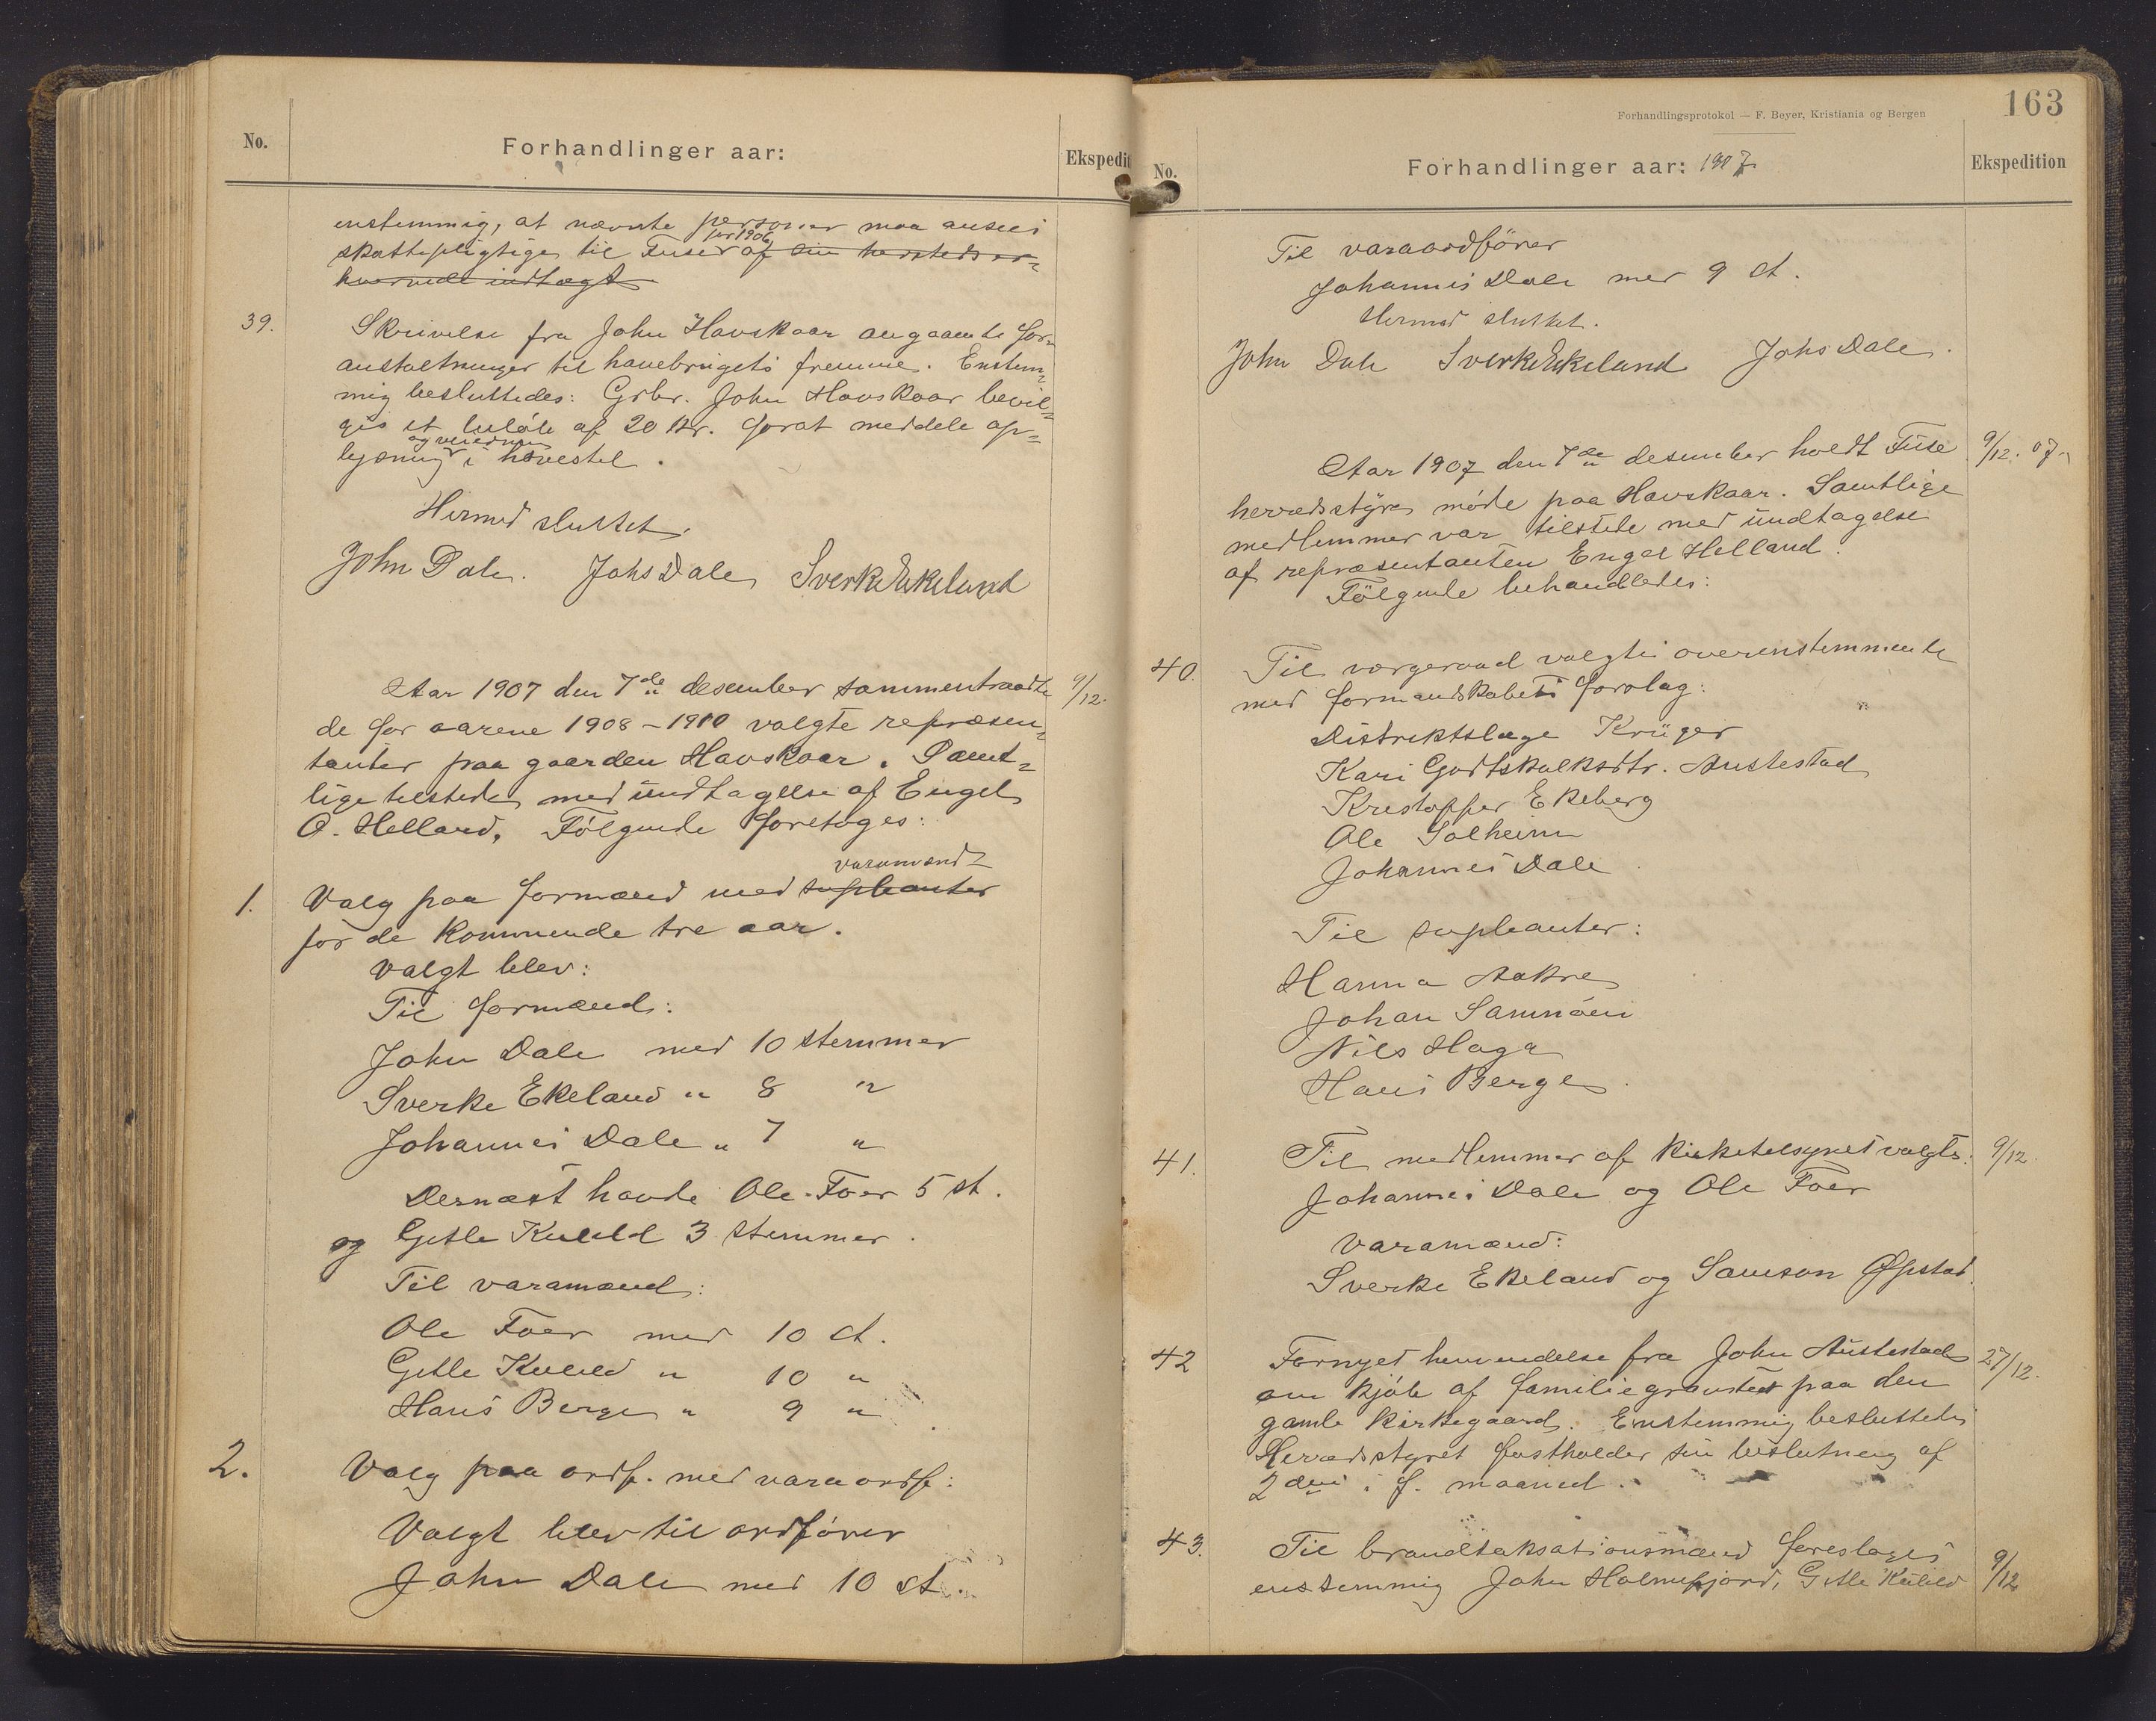 No.
Forhandlinger aar:
Ekspedit
enstemmig, at nævnte personer maa ansees
for 1906
skattepligtige til Fuse af sin hersteds er-
hvervede indtægt
39.
Skrivelse fra John Havskaar angaaende for-
anstaltninger til havebrugets fremme. Enstem-
mig besluttedes: Grbr. John Havskaar bevil-
ges et beløb af 20 kr. forat meddele op-
og veiedning
lysning i havestel.
Hermed sluttet.
John Dale. Johs Dale Sverke Ekeland
Aar 1907 den 7de desember sammentraadte
9/12.
de for aarene 1908-1910 valgte repræsen-
tanter paa gaarden Havskaar. Samt-
lige tilstede med undtagelse af Engel
O. Helland. Følgende foretoges:
varamænd
1.
Valg paa formænd med supleanter
for de kommende tre aar.
Valgt blev:
Til formænd:
John Dale med 10 stemmer
Sverke Ekeland " 8 "
Johannes Dale " 7 "
Dernæst havde Ole Foer 5 st.
og Gitle Kulild 3 stemmer.
Til varamænd:
Ole Foer med 10 st.
Gitle Kulild " 10 "
Hans Berge " 9 "
2.
Valg paa ordf. med varaordf:
Valgt blev til ordfører
John Dale med 10 st.
163
Forhandlingsprotokol — F. Beyer, Kristiania og Bergen
No.
Forhandlinger aar: 1907
Ekspedition
Til varaordfører
Johannes Dale med 9 st.
Hermed sluttet.
John Dale Sverke Ekeland Johs Dale.
Aar 1907 den 7de desember holdt Fuse
9/12. 07.
herredsstyre møde paa Havskaar. Samtlige
medlemmer var tilstede med undtagelse
af repræsentanten Engel Helland.
Følgende behandledes:
40.
Til værgeraad valgtes overenstemmende
med formandskabets forslag:
Distriktslæge Krüger
Kari Godtskalksdtr. Austestad
Kristoffer Ekeberg
Ole Solheim
Johannes Dale
Til supleanter:
Hanna Aakre
Johan Samnøen
Nils Haga
Hans Berge.
41.
Til medlemmer af kirketilsynet valgtes:
9/12.
Johannes Dale og Ole Foer
Varamænd:
Sverke Ekeland og Samson Øpstad.
42
Fornyet henvendelse fra John Austestad
27/12.
om kjøb af familiegravsted paa den
gamle kirkegaard. Enstemmig besluttedes
Herredsstyret fastholder sin beslutning af
2den i f. maaned.
43.
Til brandtaksationsmænd foreslages
enstemmig John Holmefjord, Gitle Kulild
9/12